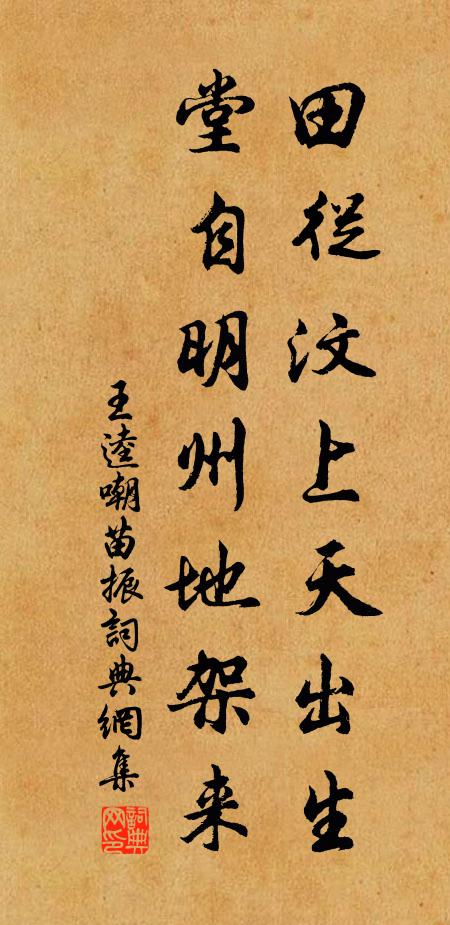 田從汶上天出生
堂自明州地架来
王逵嘲苗振詞典網集
詞典网印